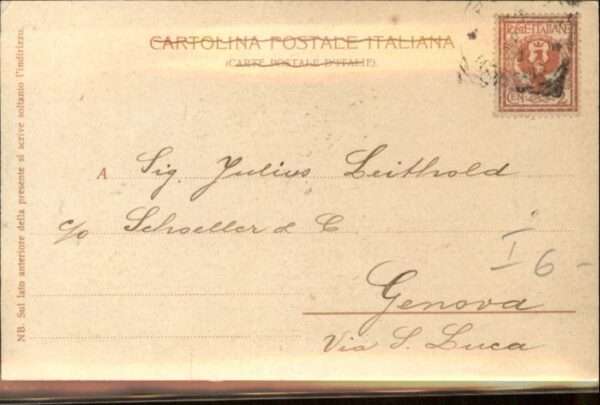 CARTOLINA POSTALE ITALIANA
(CARTE POSTALE D'ITALIE)
POSTE ITALIANE
A Sig. Julius Leithold
c/o Schoeller & C.
Genova
Via S. Luca
I 6 -
NB. Sul lato anteriore della presente si scrive soltanto l'indirizzo.